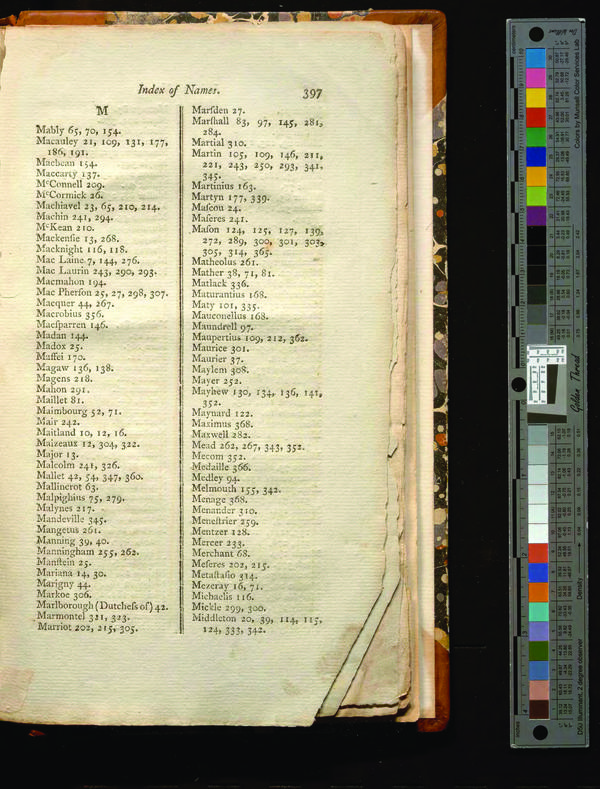 Index of Names.
397
M
Mably 65, 70, 154.
Macauley 21, 109, 131, 177,
186, 191.
Macbean 154.
Maccarty 137.
McConnell 209.
McCormick 26.
Machiavel 23, 65, 210, 214.
Machin 241, 294.
McKean 210.
Mackenſie 13, 268.
Macknight 116, 118.
Mac Laine 7, 144, 276.
Mac Laurin 243, 290, 293.
Macmahon 194.
Mac Pherſon 25, 27, 298, 307.
Macquer 44, 267.
Macrobius 356.
Macſparren 146.
Madan 144.
Madox 25.
Maffei 170.
Magaw 136, 138.
Magens 218.
Mahon 291.
Maillet 81.
Maimbourg 52, 71.
Mair 242.
Maitland 10, 12, 16.
Maizeaux 12, 304, 322.
Major 13.
Malcolm 241, 326.
Mallet 42, 54, 347, 360.
Mallincrot 63.
Malpighius 75, 279.
Malynes 217.
Mandeville 345.
Mangetus 261.
Manning 39, 40.
Manningham 255, 262.
Manſtein 25.
Mariana 14, 30.
Marigny 44.
Markoe 306.
Marlborough (Dutcheſs of) 42.
Marmontel 321, 323.
Marriot 202, 215, 305.
Marſden 27.
Marſhall 83, 97, 145, 281,
284.
Martial 310.
Martin 105, 109, 146, 211,
221, 243, 250, 293, 341,
345.
Martinius 163.
Martyn 177, 339.
Maſcou 24.
Maſeres 241.
Maſon 124, 125, 127, 139,
272, 289, 300, 301, 303,
305, 314, 365.
Matheolus 261.
Mather 38, 71, 81.
Matlack 336.
Maturantius 168.
Maty 101, 335.
Mauconellus 168.
Maundrell 97.
Maupertius 109, 212, 362.
Maurice 301.
Maurier 37.
Maylem 308.
Mayer 252.
Mayhew 130, 134, 136, 141,
352.
Maynard 122.
Maximus 368.
Maxwell 282.
Mead 262, 267, 343, 352.
Mecom 352.
Medaille 366.
Medley 94.
Melmouth 155, 342.
Menage 368.
Menander 310.
Meneſtrier 259.
Mentzer 128.
Mercer 233.
Merchant 68.
Meſeres 202, 215.
Metaſtaſio 314.
Mezeray 16, 71.
Michaelis 116.
Mickle 299, 300.
Middleton 20, 39, 114, 115,
124, 333, 342.
Colors by Munsell Color Services Lab
Golden Thread
Density
D50 Illuminant, 2 degree observer
inches